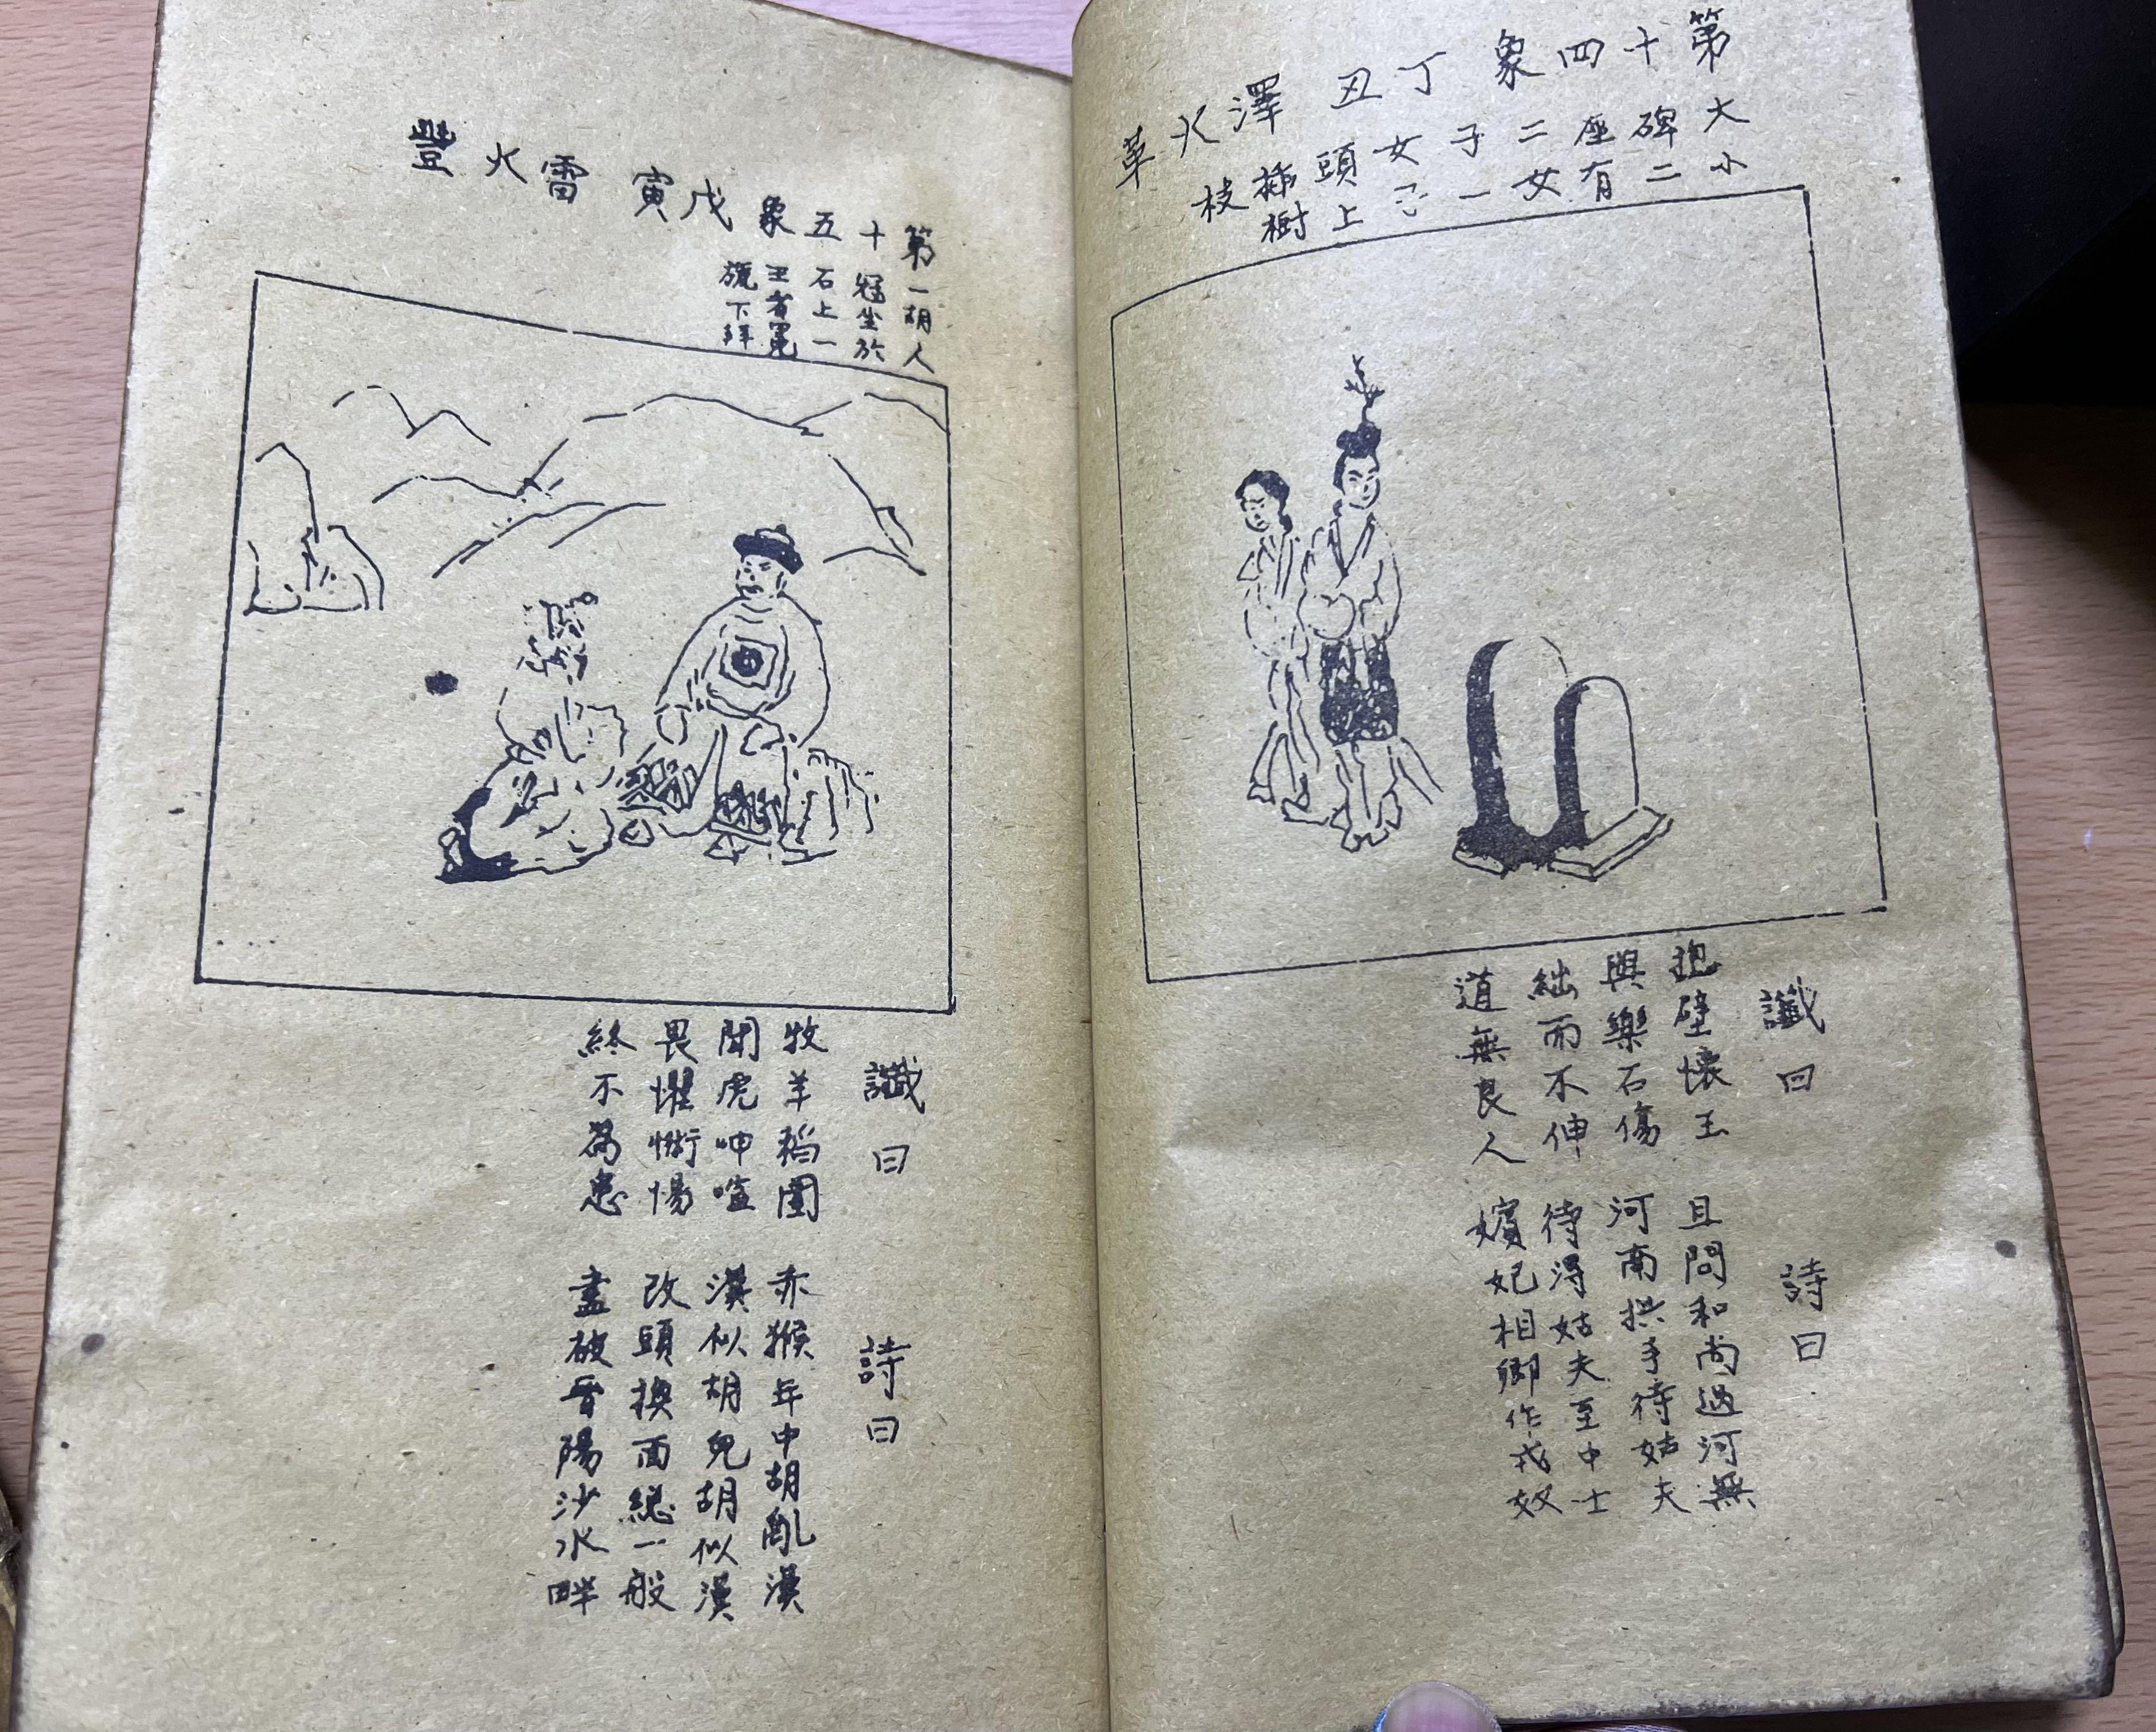 第十四象 丁丑 澤火革
大小
碑二
座有
二女
子一
女子
頭上
插樹
枝
讖曰
抱壁懷玉
與樂石傷
絀而不伸
道無良人
詩曰
且問和尚過河無
河南拱手待姑夫
待得姑夫至中士
嬪妃相卿作戎奴
第十五象 戊寅 雷火豐
一胡人
冠坐於
石上一
王者冕
旒下拜
讖曰
牧羊稻園
聞虎呻喧
畏懼惕
終不為患
詩曰
赤猴年中胡亂漢
漢似胡兒胡似漢
改頭換面總一般
盡破晉陽沙水畔